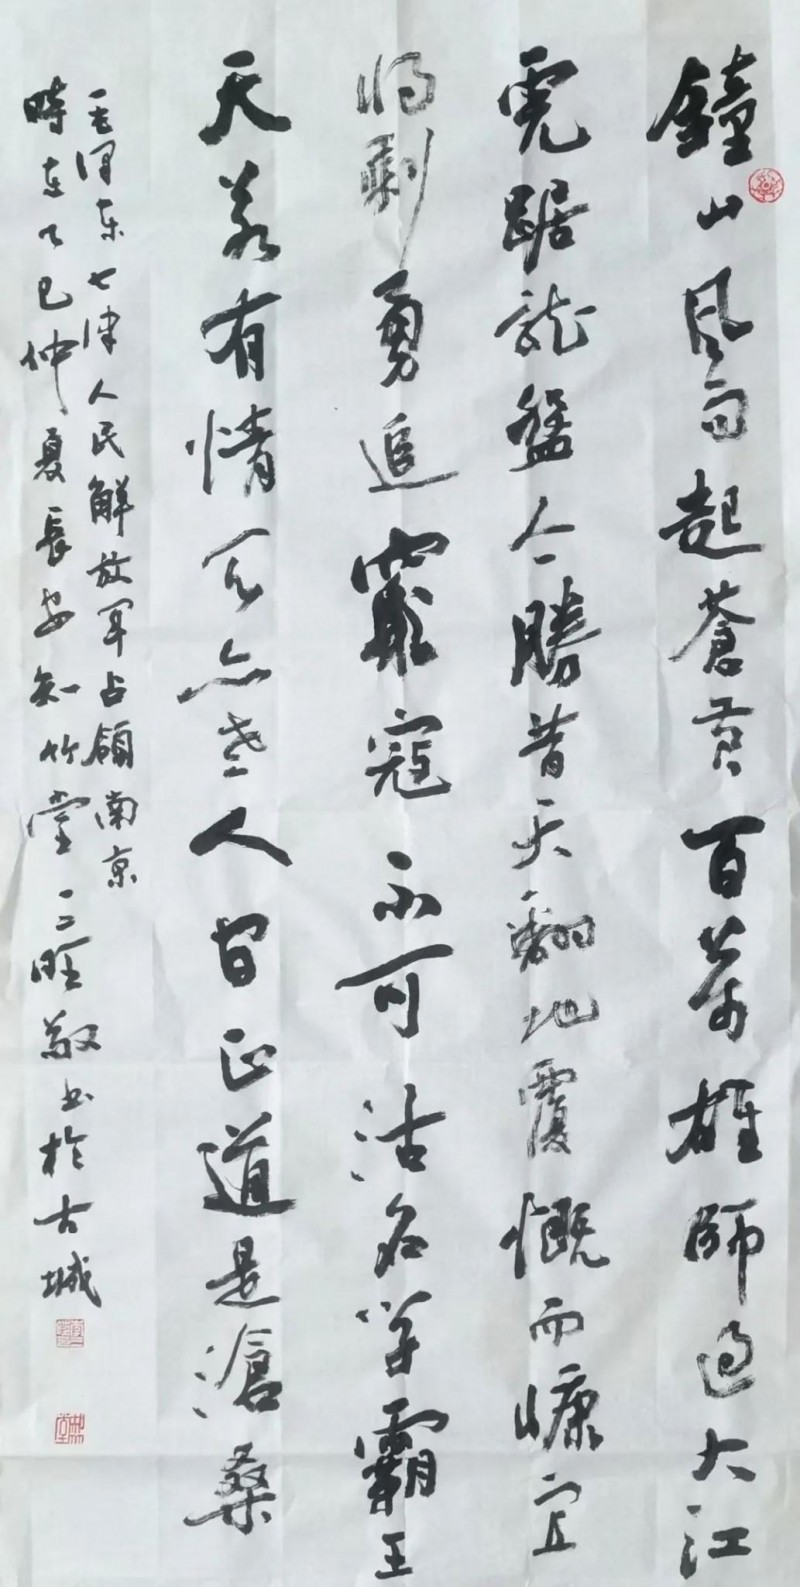 鐘山风雨起蒼黄百萬雄師过大江
虎踞龍盤今勝昔天翻地覆慨而慷宜
将剩勇追窮寇不可沽名学霸王
天若有情天亦老人间正道是滄桑
毛泽东七律人民解放军占領南京
時在乙巳仲夏長安知竹堂敬书於古城